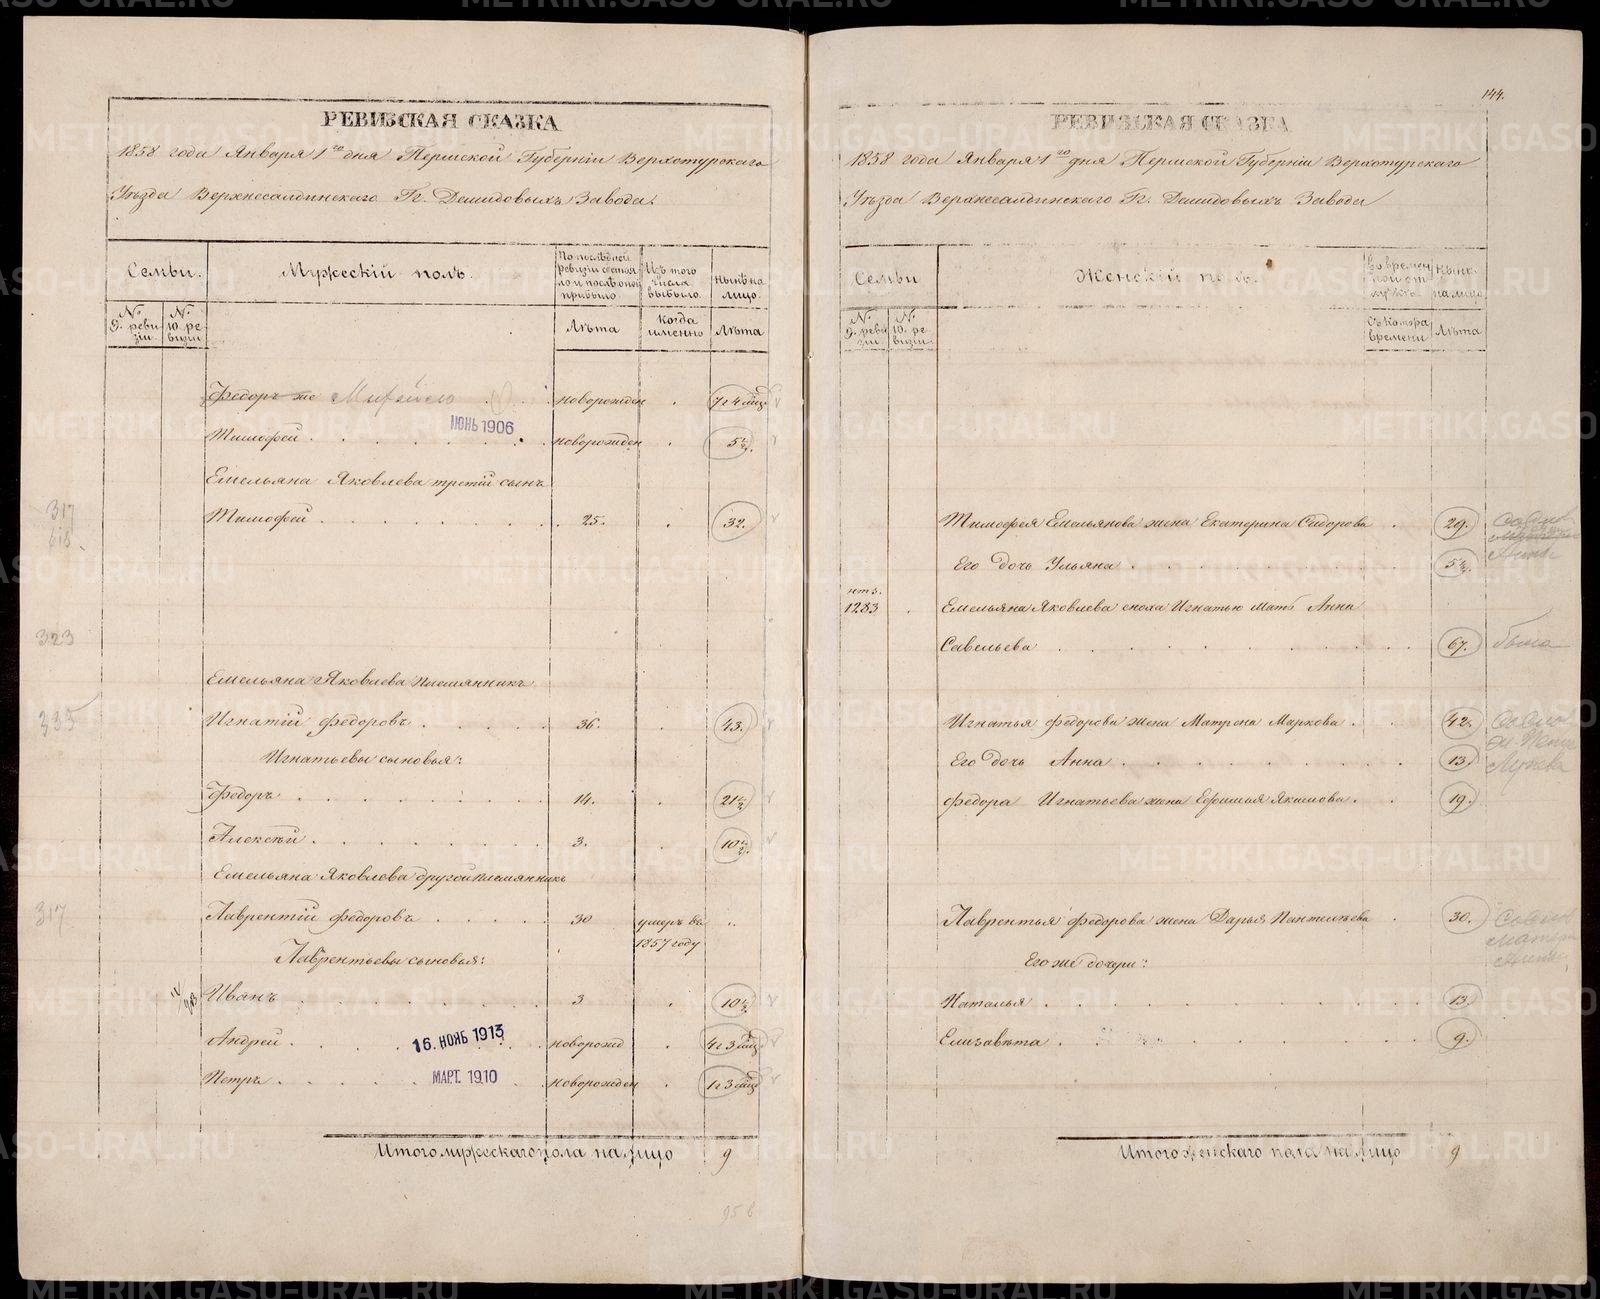 РЕВИЗСКАЯ СКАЗКА
1858 года Января 1го дня Пермской Губернiи Верхотурскаго
Уѣзда Верхнесалдинскаго Гг. Демидовыхъ Завода.
Семьи.
Мужескiй полъ.
По послѣдней ревизiи состояло и послѣ оной прибыло.
Изъ того числа выбыло.
Нынѣ на лицо.
№ 9. ревизiи
№ 10. ревизiи
Лѣта
Когда именно
Лѣта
Федоръ же новорожден . 7 г 4 мѣс.
ИЮНЬ 1906
Тимофей . новорожден . 5½.
Емельяна Яковлева третiй сынъ
317
Тимофей . 25. . 32.
323
Емельяна Яковлева племянникъ
335
Игнатiй Федоровъ . 36. . 43.
Игнатьевы сыновья:
Федоръ . 14. . 21½
Алексѣй . 3. . 10½.
Емельяна Яковлева другой племянникъ
317
Лаврентiй Федоровъ . 30 умеръ въ 1857 году
Лаврентьевы сыновья:
Иванъ . 3 . 10½
Андрей . новорожд . 4 г 3 мѣс
16. НОЯБ 1913
Петръ . новорожден . 1 г 3 мѣс
МАРТ. 1910
Итого мужескаго пола на лицо 9
95 б
144.
РЕВИЗСКАЯ СКАЗКА
1858 года Января 1го дня Пермской Губернiи Верхотурскаго
Уѣзда Верхнесалдинскаго Гг. Демидовыхъ Завода
Семьи
Женскiй полъ.
Во временной отлучкѣ
Нынѣ на лицо
№ 9. ревизiи
№ 10. ревизiи
Съ котора времени
Лѣта
Тимофея Емельянова жена Екатерина Сидорова . 29.
Его дочь Ульяна . 5½.
1283 . Емельяна Яковлева сноха Игнатью мать Анна
Савельева . 67.
Игнатья Федорова жена Матрена Маркова . 42.
Его дочь Анна . 13
Федора Игнатьева жена Ефимья Якимова . 19.
Лаврентья Федорова жена Дарья Пантелѣева . 30.
Его же дочери:
Наталья . 13.
Елизавѣта . 9.
Итого женскаго пола на лицо 9
METRIKI.GASO-URAL.RU